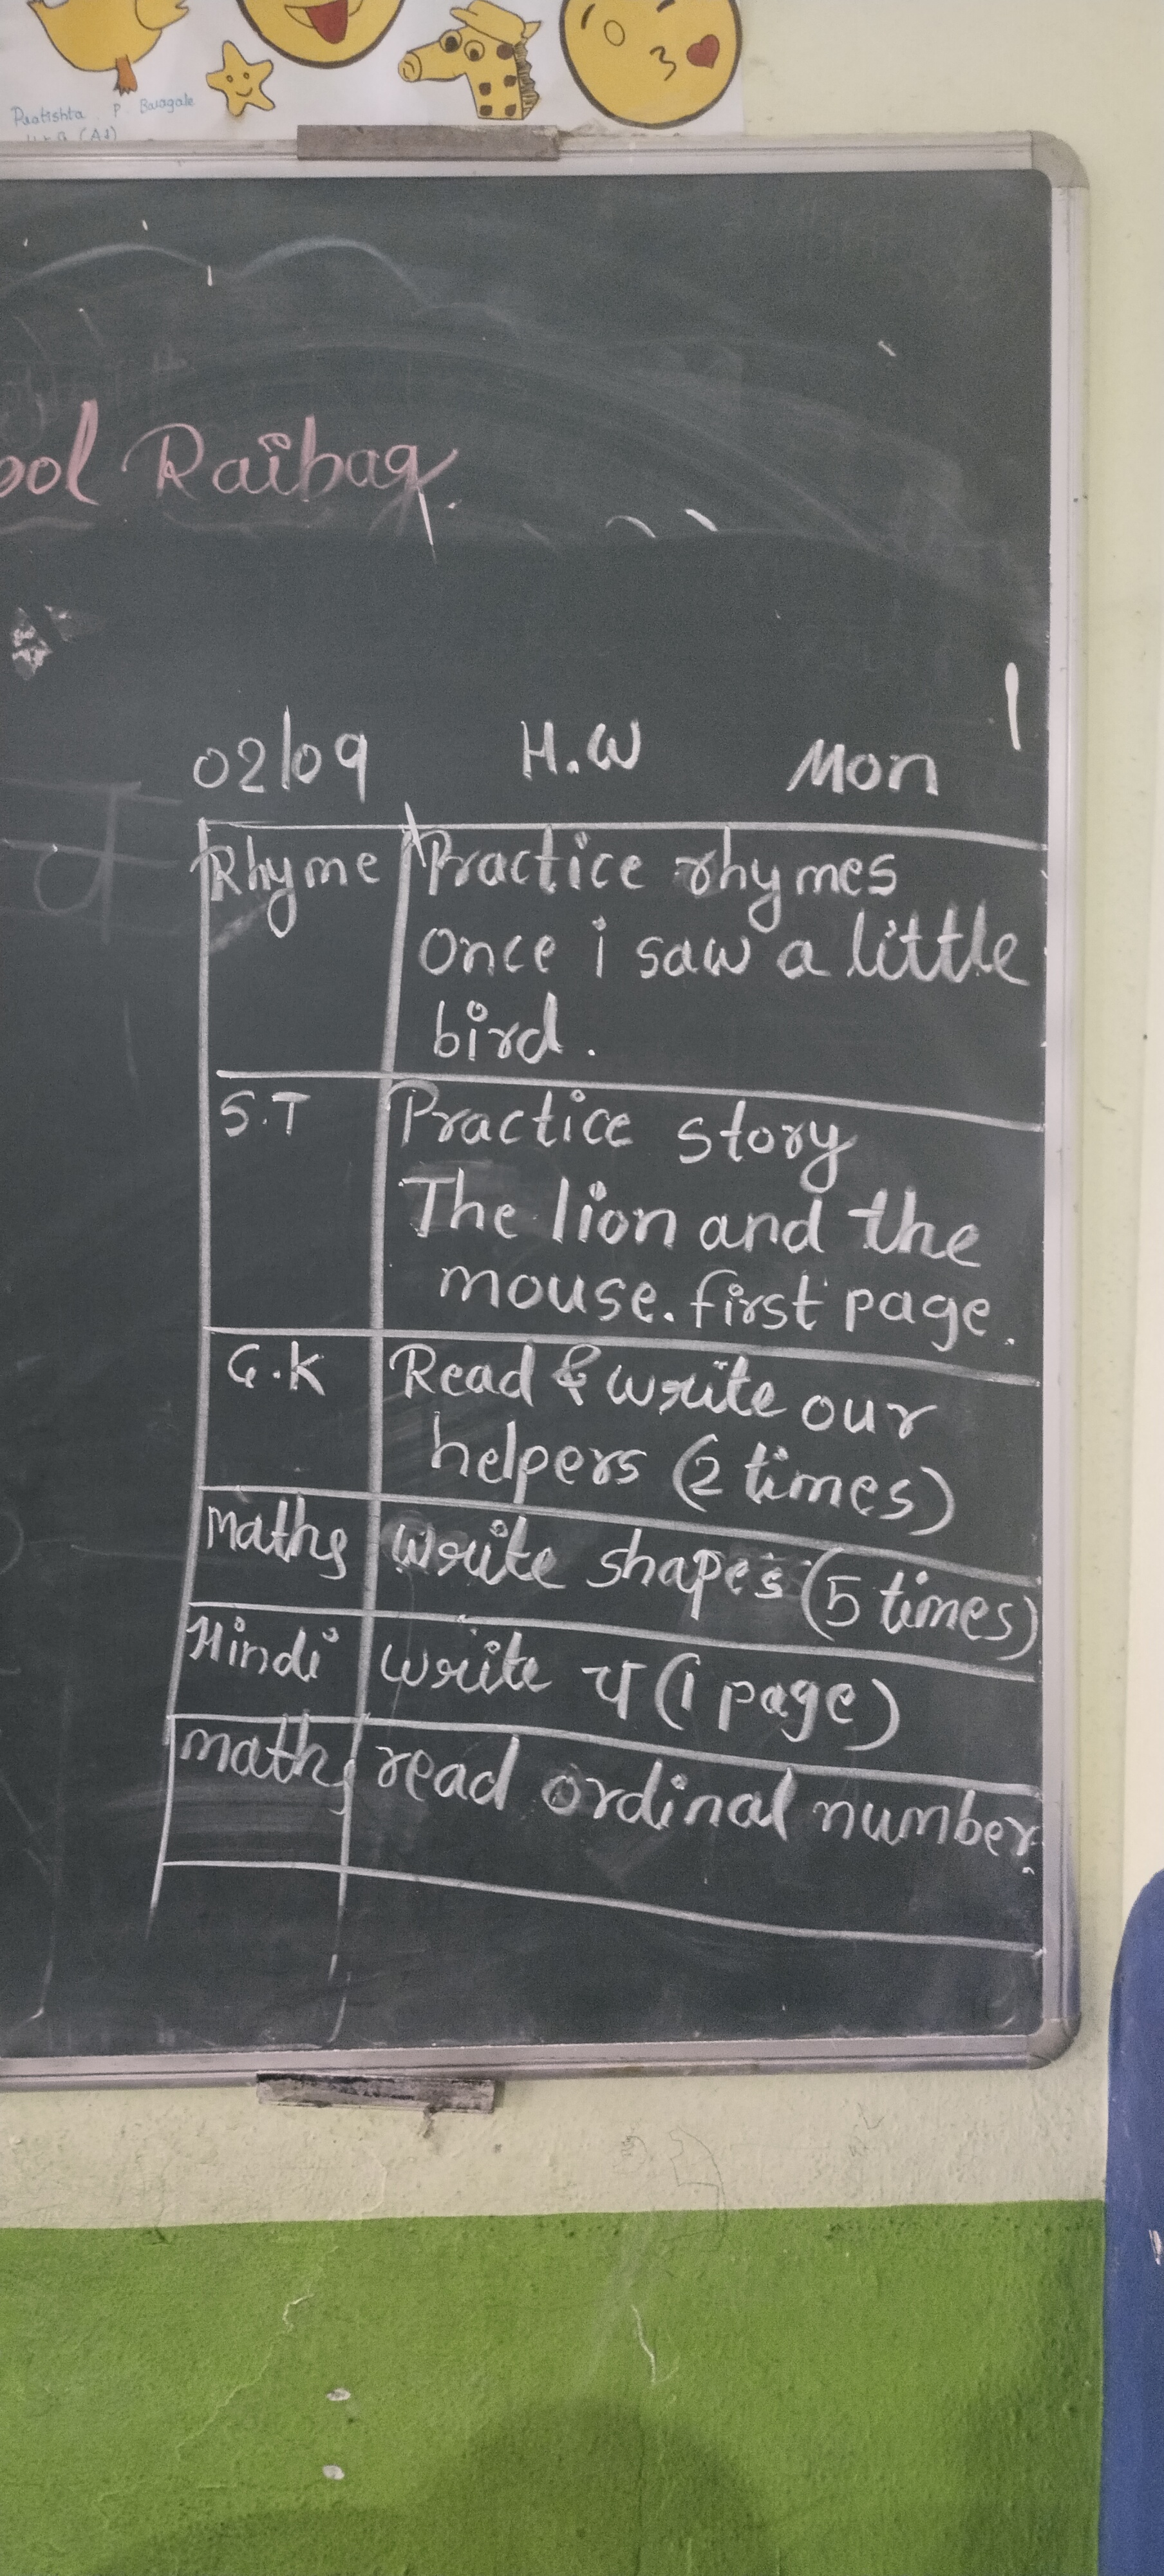 Pratishta P. Baragale
ool Raibag.
02/09 H.W Mon
Rhyme Practice rhymes
Once i saw a little
bird.
S.T Practice story
The lion and the
mouse. first page.
G.K Read & write our
helpers (2 times)
maths write shapes (5 times)
Hindi write य (1 page)
maths read ordinal number.